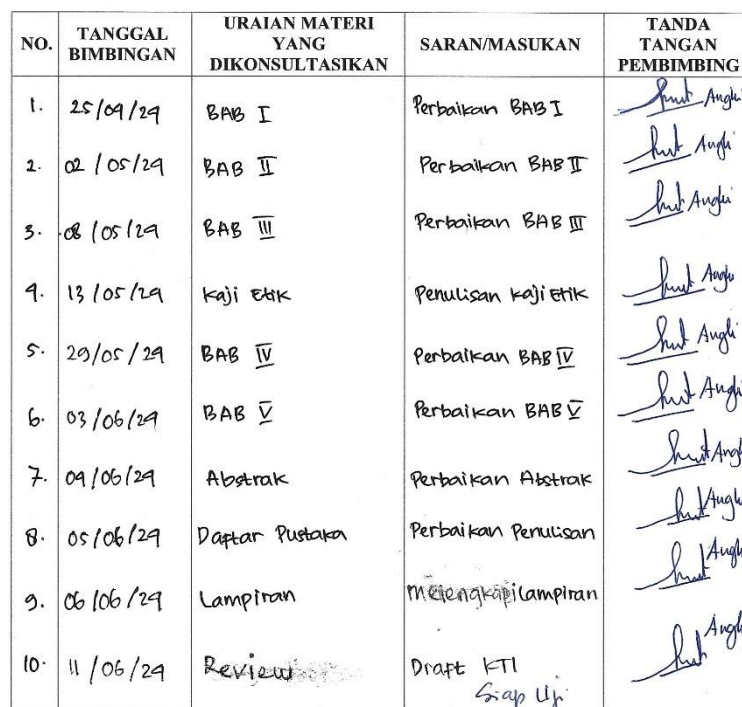 NO. TANGGAL BIMBINGAN URAIAN MATERI YANG DIKONSULTASIKAN SARAN/MASUKAN TANDA TANGAN PEMBIMBING
1. 25/04/24 BAB I Perbaikan BAB I Angli
2. 02/05/24 BAB II Perbaikan BAB II Angli
3. 08/05/24 BAB III Perbaikan BAB III Angli
4. 13/05/24 Kaji Etik Penulisan Kaji Etik Angli
5. 29/05/24 BAB IV Perbaikan BAB IV Angli
6. 03/06/24 BAB V Perbaikan BAB V Angli
7. 04/06/24 Abstrak Perbaikan Abstrak Angli
8. 05/06/24 Daftar Pustaka Perbaikan Penulisan Angli
9. 06/06/24 Lampiran Melengkapi lampiran Angli
10. 11/06/24 Review Draft KTI Angli
Siap Uji